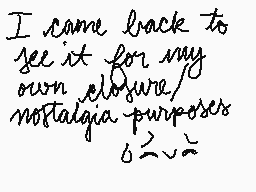 I came back to
see it for my
own closure/
nostalgia purposes